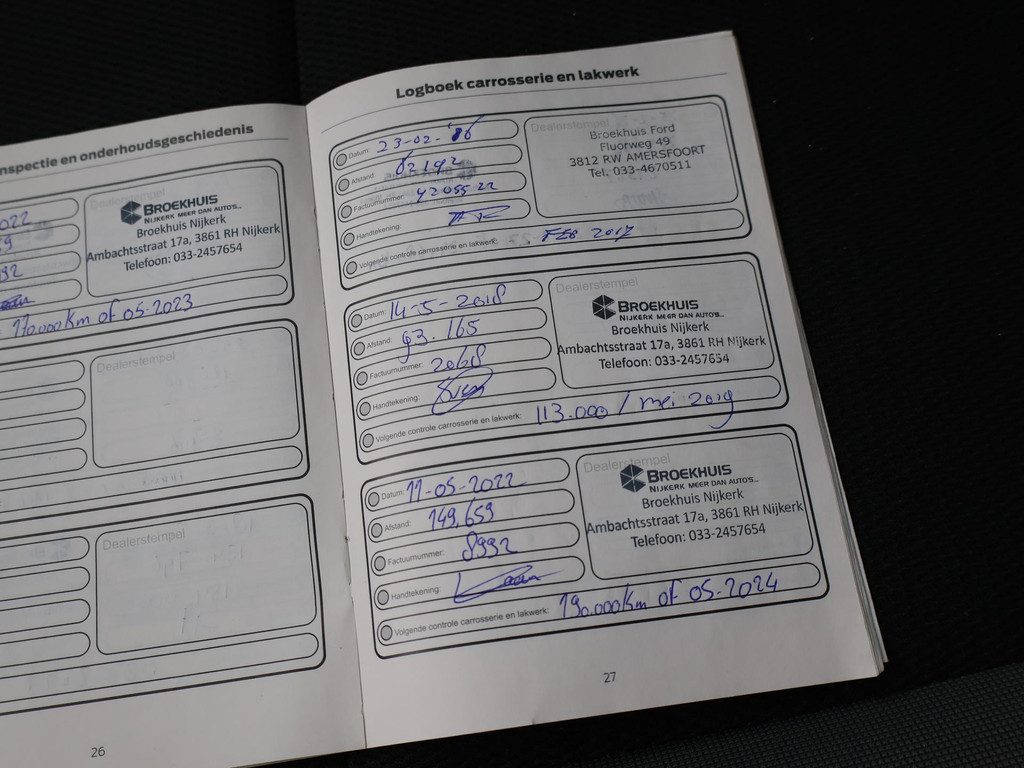 nspectie en onderhoudsgeschiedenis
022
59
92
Dealerstempel
BROEKHUIS
NIJKERK MEER DAN AUTO'S...
Broekhuis Nijkerk
Ambachtsstraat 17a, 3861 RH Nijkerk
Telefoon: 033-2457654
170.000km of 05-2023
Dealerstempel
Dealerstempel
26
Logboek carrosserie en lakwerk
Datum: 23-02-'16
Afstand: 62192
Factuurnummer: 4205522
Handtekening:
Volgende controle carrosserie en lakwerk: FEB 2017
Dealerstempel
Broekhuis Ford
Fluorweg 49
3812 RW AMERSFOORT
Tel. 033-4670511
Datum: 14-5-2018
Afstand: 93.165
Factuurnummer: 2068
Handtekening:
Volgende controle carrosserie en lakwerk: 113.000 / mei 2019
Dealerstempel
BROEKHUIS
NIJKERK MEER DAN AUTO'S...
Broekhuis Nijkerk
Ambachtsstraat 17a, 3861 RH Nijkerk
Telefoon: 033-2457654
Datum: 11-05-2022
Afstand: 149.659
Factuurnummer: 8992
Handtekening:
Volgende controle carrosserie en lakwerk: 190.000km of 05-2024
Dealerstempel
BROEKHUIS
NIJKERK MEER DAN AUTO'S...
Broekhuis Nijkerk
Ambachtsstraat 17a, 3861 RH Nijkerk
Telefoon: 033-2457654
27